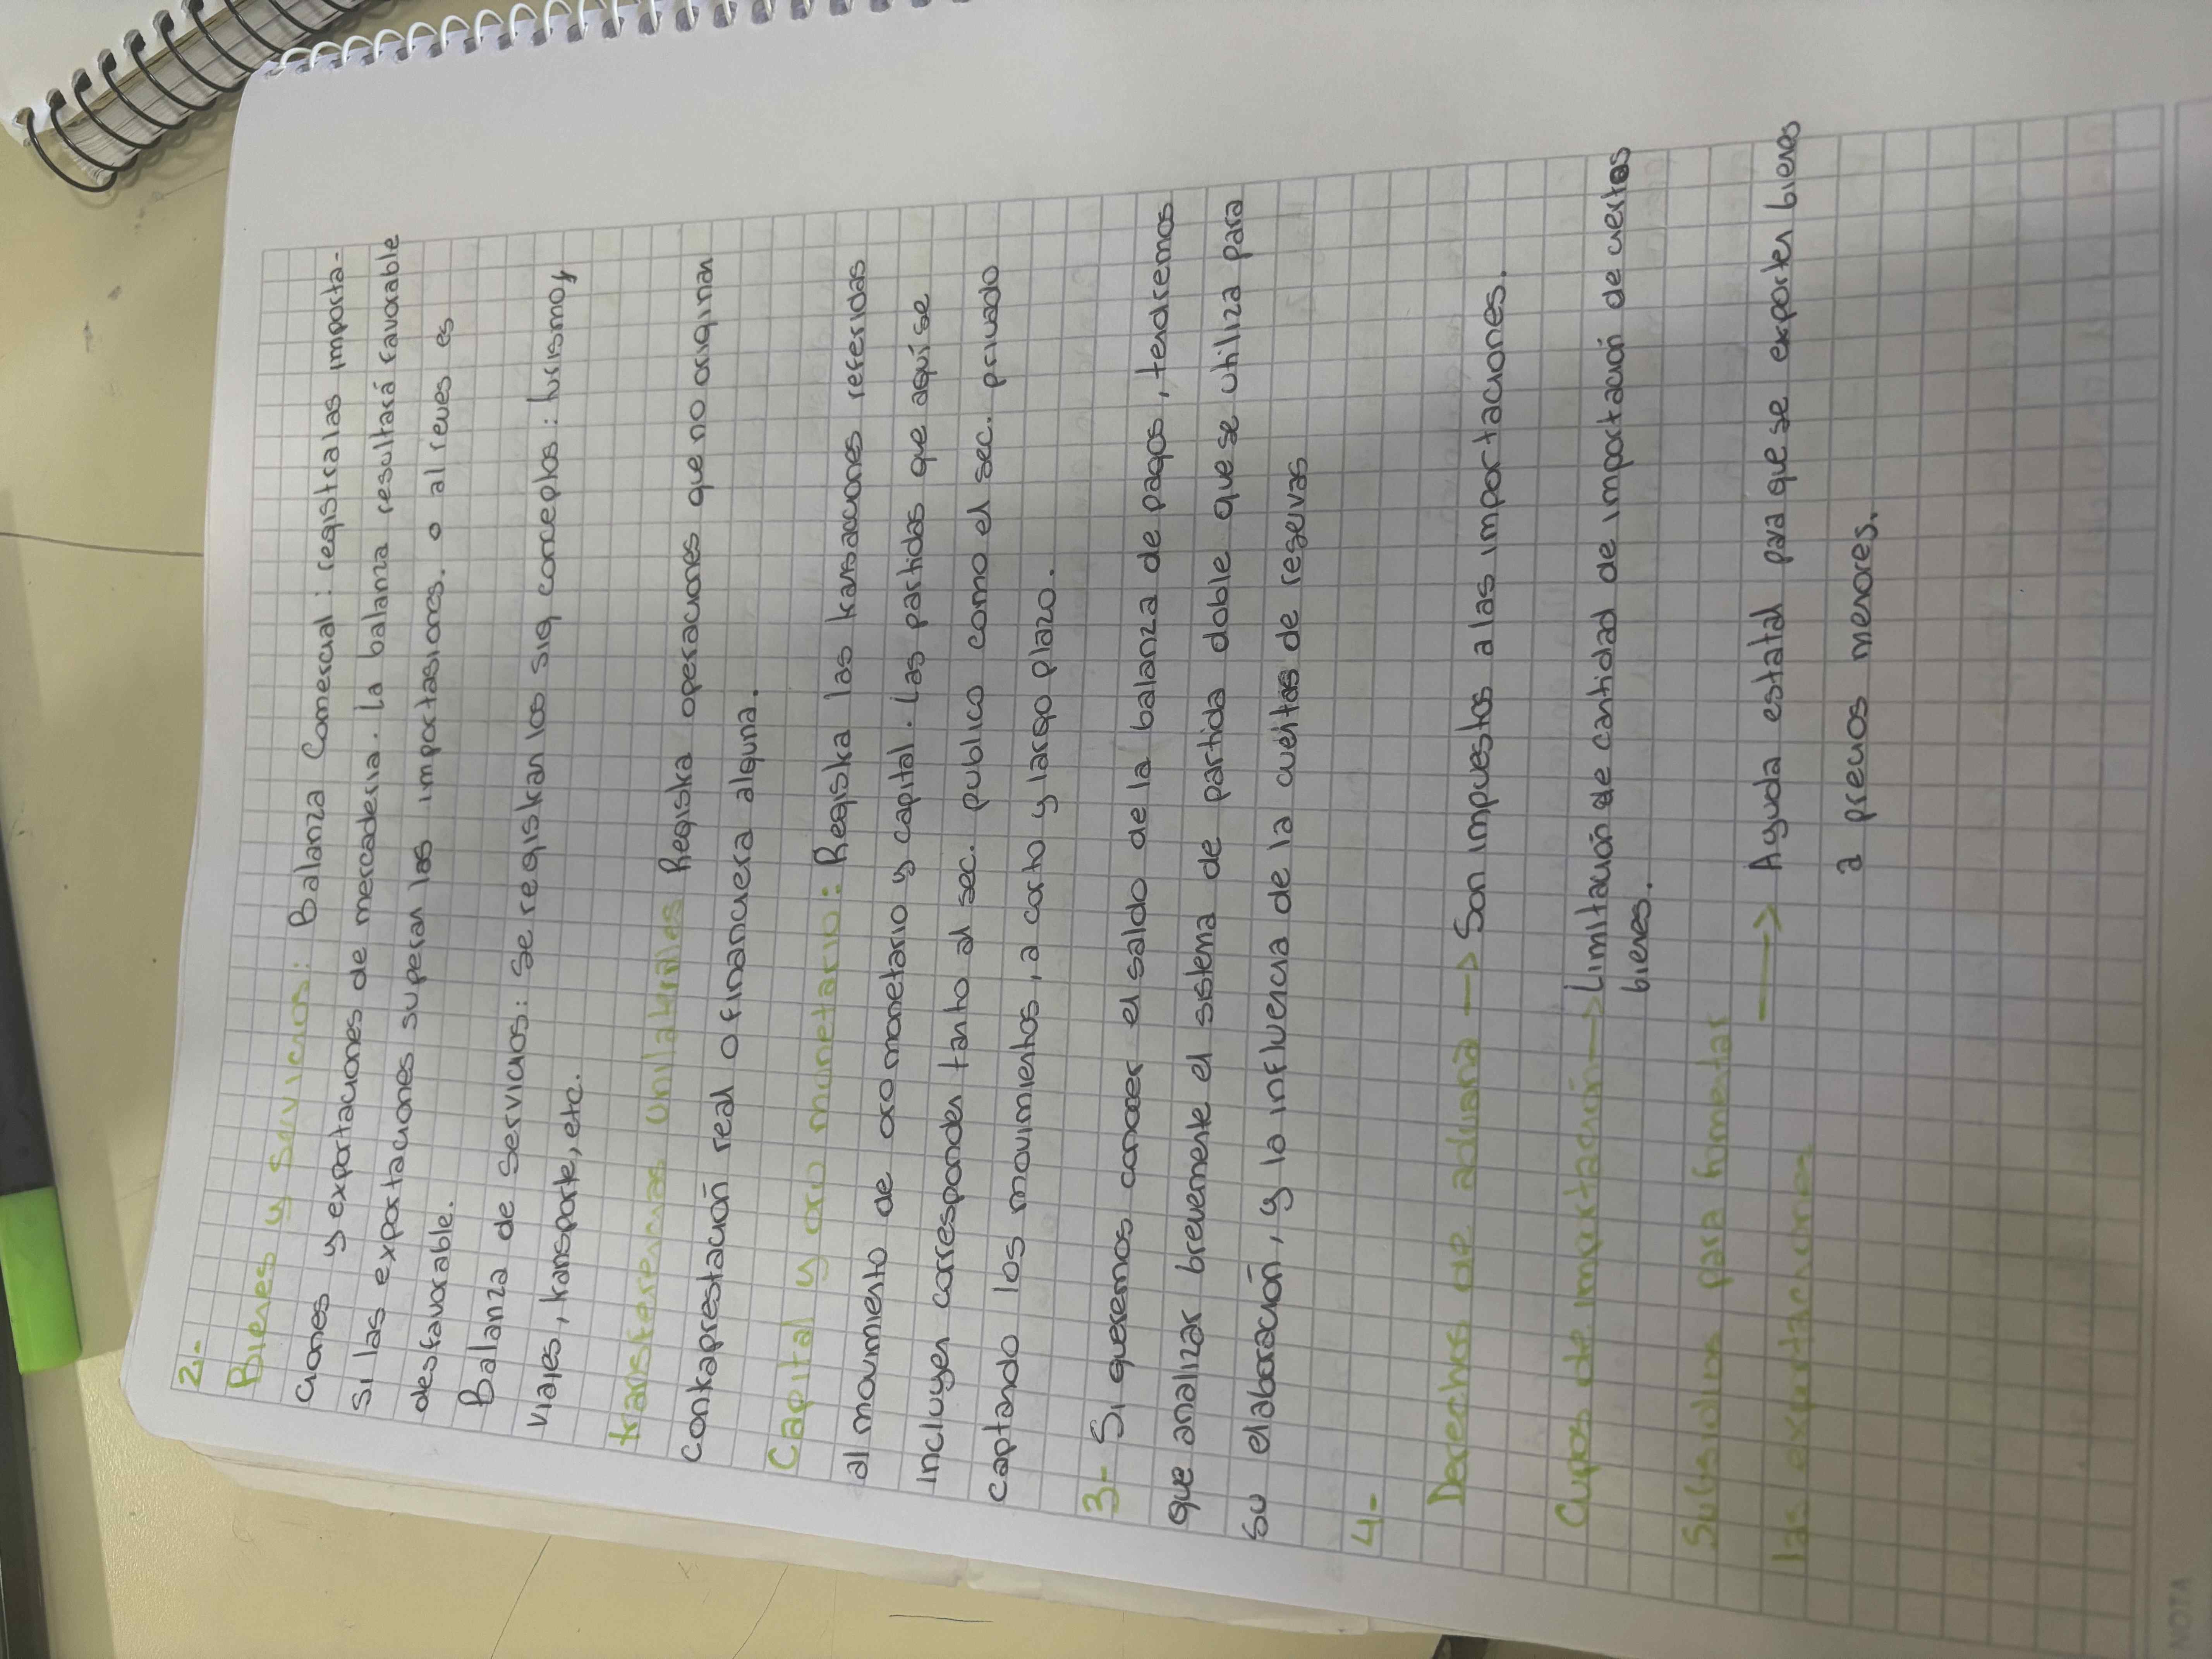 2.-
Bienes y Servicios: Balanza Comercial: registra las importa-
ciones y exportaciones de mercaderia. la balanza resultará favorable
si las exportaciones superan las importasiones. o al reves es
desfavorable.
Balanza de servicios: Se registran los sig conceptos: turismo y
viajes, transporte, etc.
transferencias Unilaterales Registra operaciones que no originan
contraprestación real o financiera alguna.
Capital y oro monetario: Registra las transacciones referidas
al movimiento de oro monetario y capital. las partidas que aquí se
incluyen corresponden tanto al sec. publico como el sec. privado
captando los movimientos, a corto y largo plazo.
3- Si queremos conocer el saldo de la balanza de pagos, tendremos
que analizar brevemente el sistema de partida doble que se utiliza para
su elaboración, y la influencia de la cuentas de reservas
4-
Derechos de aduana -> Son impuestos a las importaciones.
Cupos de importación -> Limitación de cantidad de importación de ciertos
bienes.
Subsidios para fomentar
las exportaciones -> Ayuda estatal para que se exporten bienes
a precios menores.
NOTA